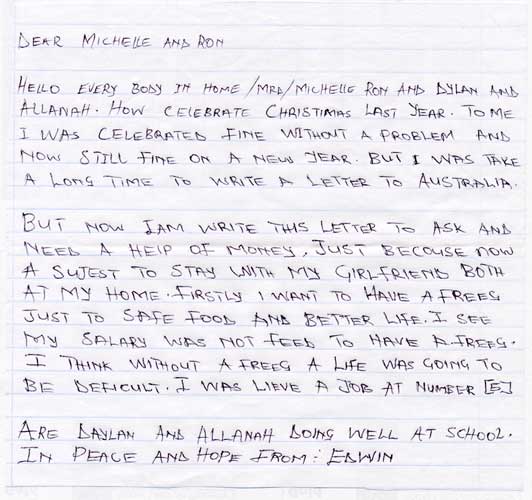 DEAR MICHELLE AND RON
HELLO EVERY BODY IN HOME/MRD/MICHELLE RON AND DYLAN AND
ALLANAH. HOW CELEBRATE CHRISTIMAS LAST YEAR. TO ME
I WAS CELEBRATED FINE WITHOUT A PROBLEM AND
NOW STILL FINE ON A NEW YEAR. BUT I WAS TAKE
A LONG TIME TO WRITE A LETTER TO AUSTRALIA.
BUT NOW IAM WRITE THIS LETTER TO ASK AND
NEED A HELP OF MONEY, JUST BECOUSE NOW
A SUJEST TO STAY WITH MY GIRLFRIEND BOTH
AT MY HOME. FIRSTLY I WANT TO HAVE A FREEG
JUST TO SAFE FOOD AND BETTER LIFE. I SEE
MY SALARY WAS NOT FEED TO HAVE A FREEG.
I THINK WITHOUT A FREEG A LIFE WAS GOING TO
BE DEFICULT. I WAS LIEVE A JOB AT NUMBER [5]
ARE DAYLAN AND ALLANAH DOING WELL AT SCHOOL.
IN PEACE AND HOPE FROM: EDWIN